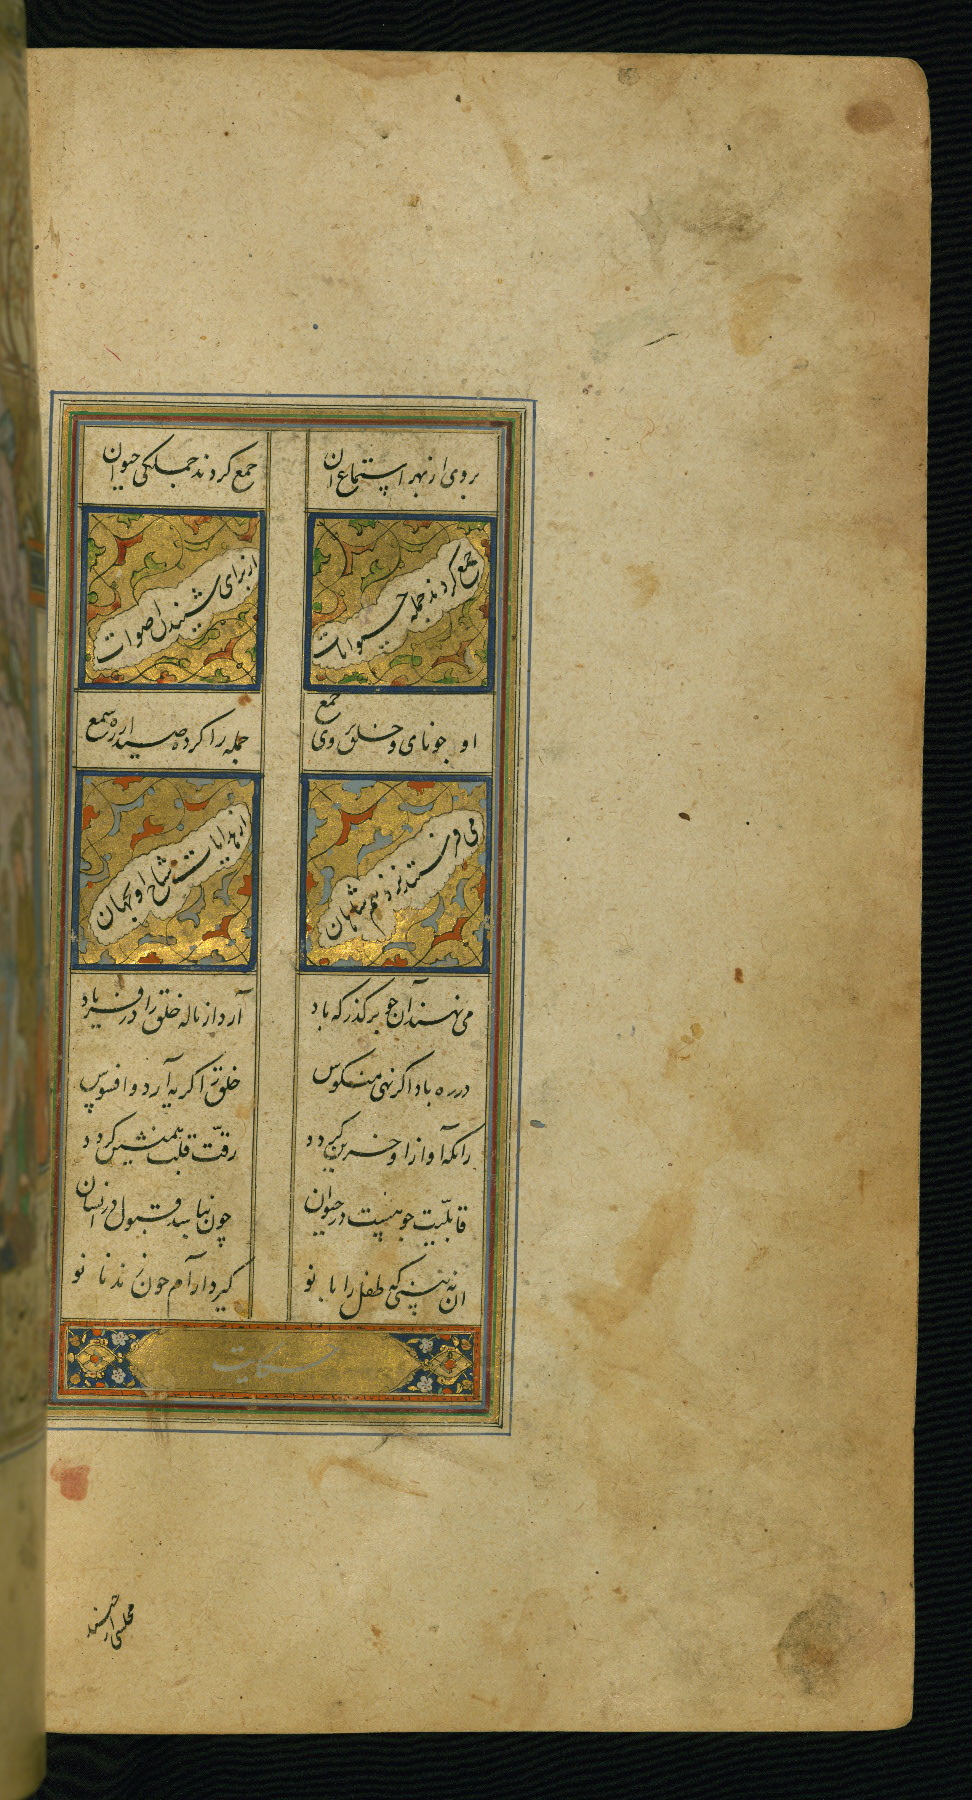 بروی از بهر استماع آن
جمع کردند جملکی حیوان
جمع کردند جمله حیوانات
از برای شنیدن اصوات
او جو نای و خلق بروی جمع
جمله را کرده صید از ره سمع
می فرستند نزد هم شاهان
از هدایات شاخ او بجهان
می نهند آن جو بر کذر که باد
آرد از ناله خلق را در فریاد
در ره باد اکر نهی منکوس
خلق را کریه آرد و افسوس
زانکه آواز او حزین کردد
رقت قلب همنشین کردد
قابلیت جو نیست در حیوان
چون نیاید قبول در انسان
آن نه بینی که طفل را بابو
کیرد آرام جون زند نانو
حکایت
مجلسی از